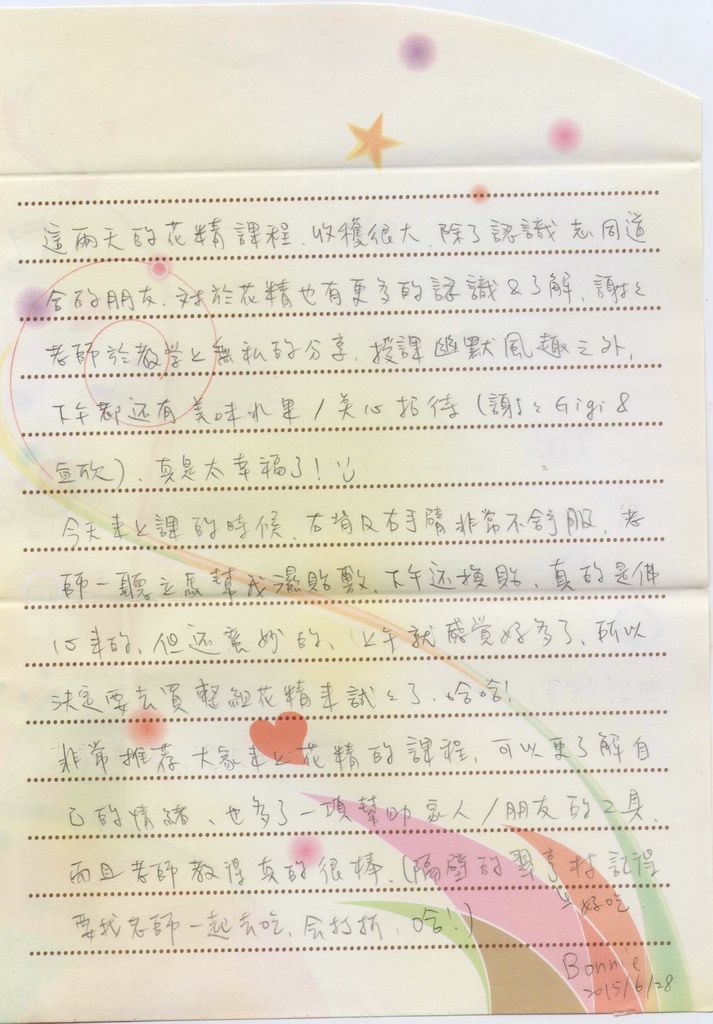 這兩天的花精課程、收穫很大、除了認識志同道
合的朋友、對於花精也有更多的認識&了解、謝謝
老師於教学上無私的分享、授課幽默風趣之外、
下午都还有美味水果/美心招待(謝謝Gigi &
宜欣)、真是太幸福了!
今天來上課的時候、右肩及右手臂非常不舒服、老
師一聽立馬幫我濕貼敷、下午还換貼、真的是佛
心來的、但还蠻妙的、上午就感覚好多了、所以
決定要去買整組花精來試试了、哈哈!
非常推荐大家來上花精的課程、可以更了解自
己的情緒、也多了一項幫助家人/朋友的工具、
而且老師教得真的很棒、(隔壁的翠亨村記得
好吃
要找老師一起去吃、会打折、哈!)
Bonnie
2015/6/28